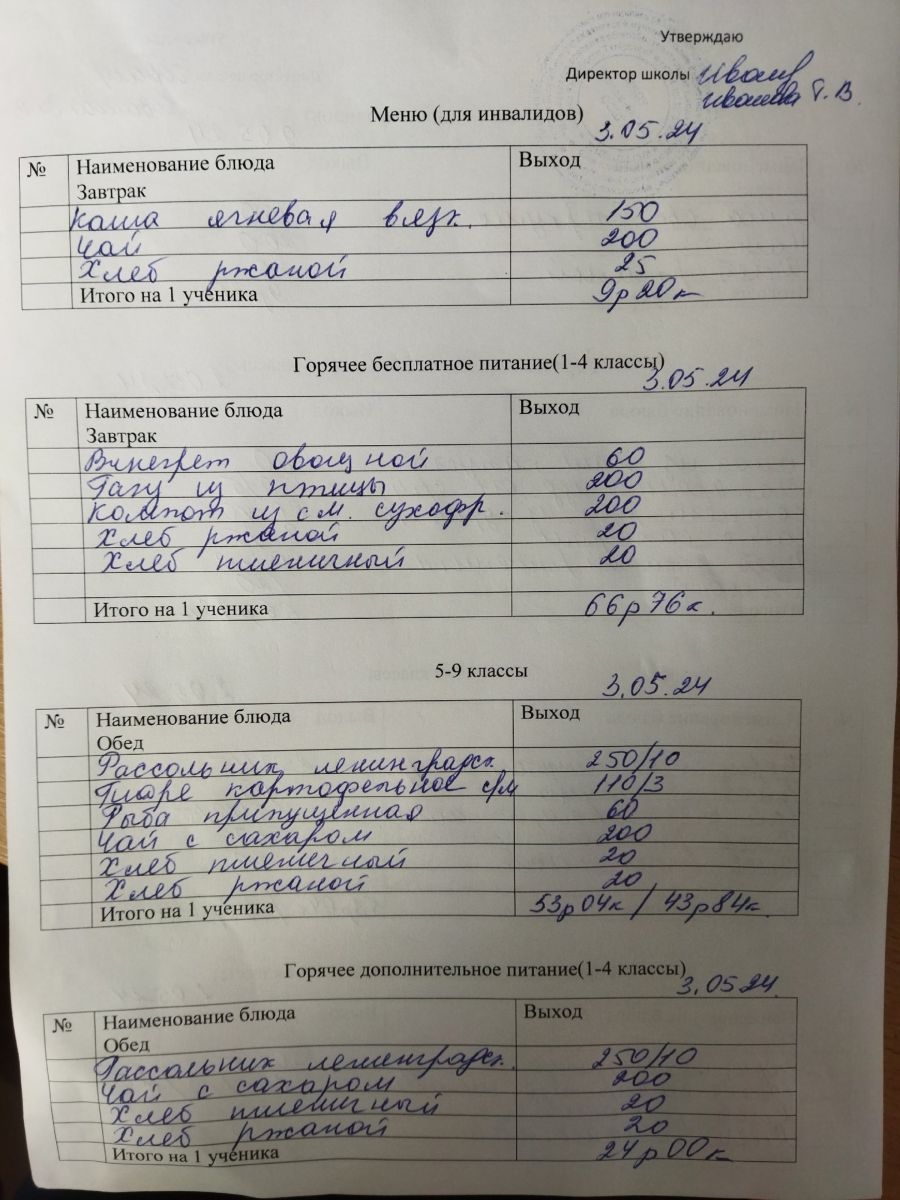 Утверждаю
Директор школы
Иванова Т. В.
Меню (для инвалидов)
3.05.24
№ Наименование блюда Выход
Завтрак
Каша ягневая вязк. 150
Чай 200
Хлеб ржаной 25
Итого на 1 ученика 9р20к
Горячее бесплатное питание(1-4 классы)
3.05.24
№ Наименование блюда Выход
Завтрак
Винегрет овощной 60
Рагу из птицы 200
Компот из см. сухофр. 200
Хлеб ржаной 20
Хлеб пшеничный 20
Итого на 1 ученика 66р76к.
5-9 классы
3.05.24
№ Наименование блюда Выход
Обед
Рассольник ленинградск. 250/10
Пюре картофельное с/м 110/3
Рыба припущенная 60
Чай с сахаром 200
Хлеб пшеничный 20
Хлеб ржаной 20
Итого на 1 ученика 53р04к / 43р84к.
Горячее дополнительное питание(1-4 классы)
3.05.24
№ Наименование блюда Выход
Обед
Рассольник ленинградск. 250/10
Чай с сахаром 200
Хлеб пшеничный 20
Хлеб ржаной 20
Итого на 1 ученика 24р00к